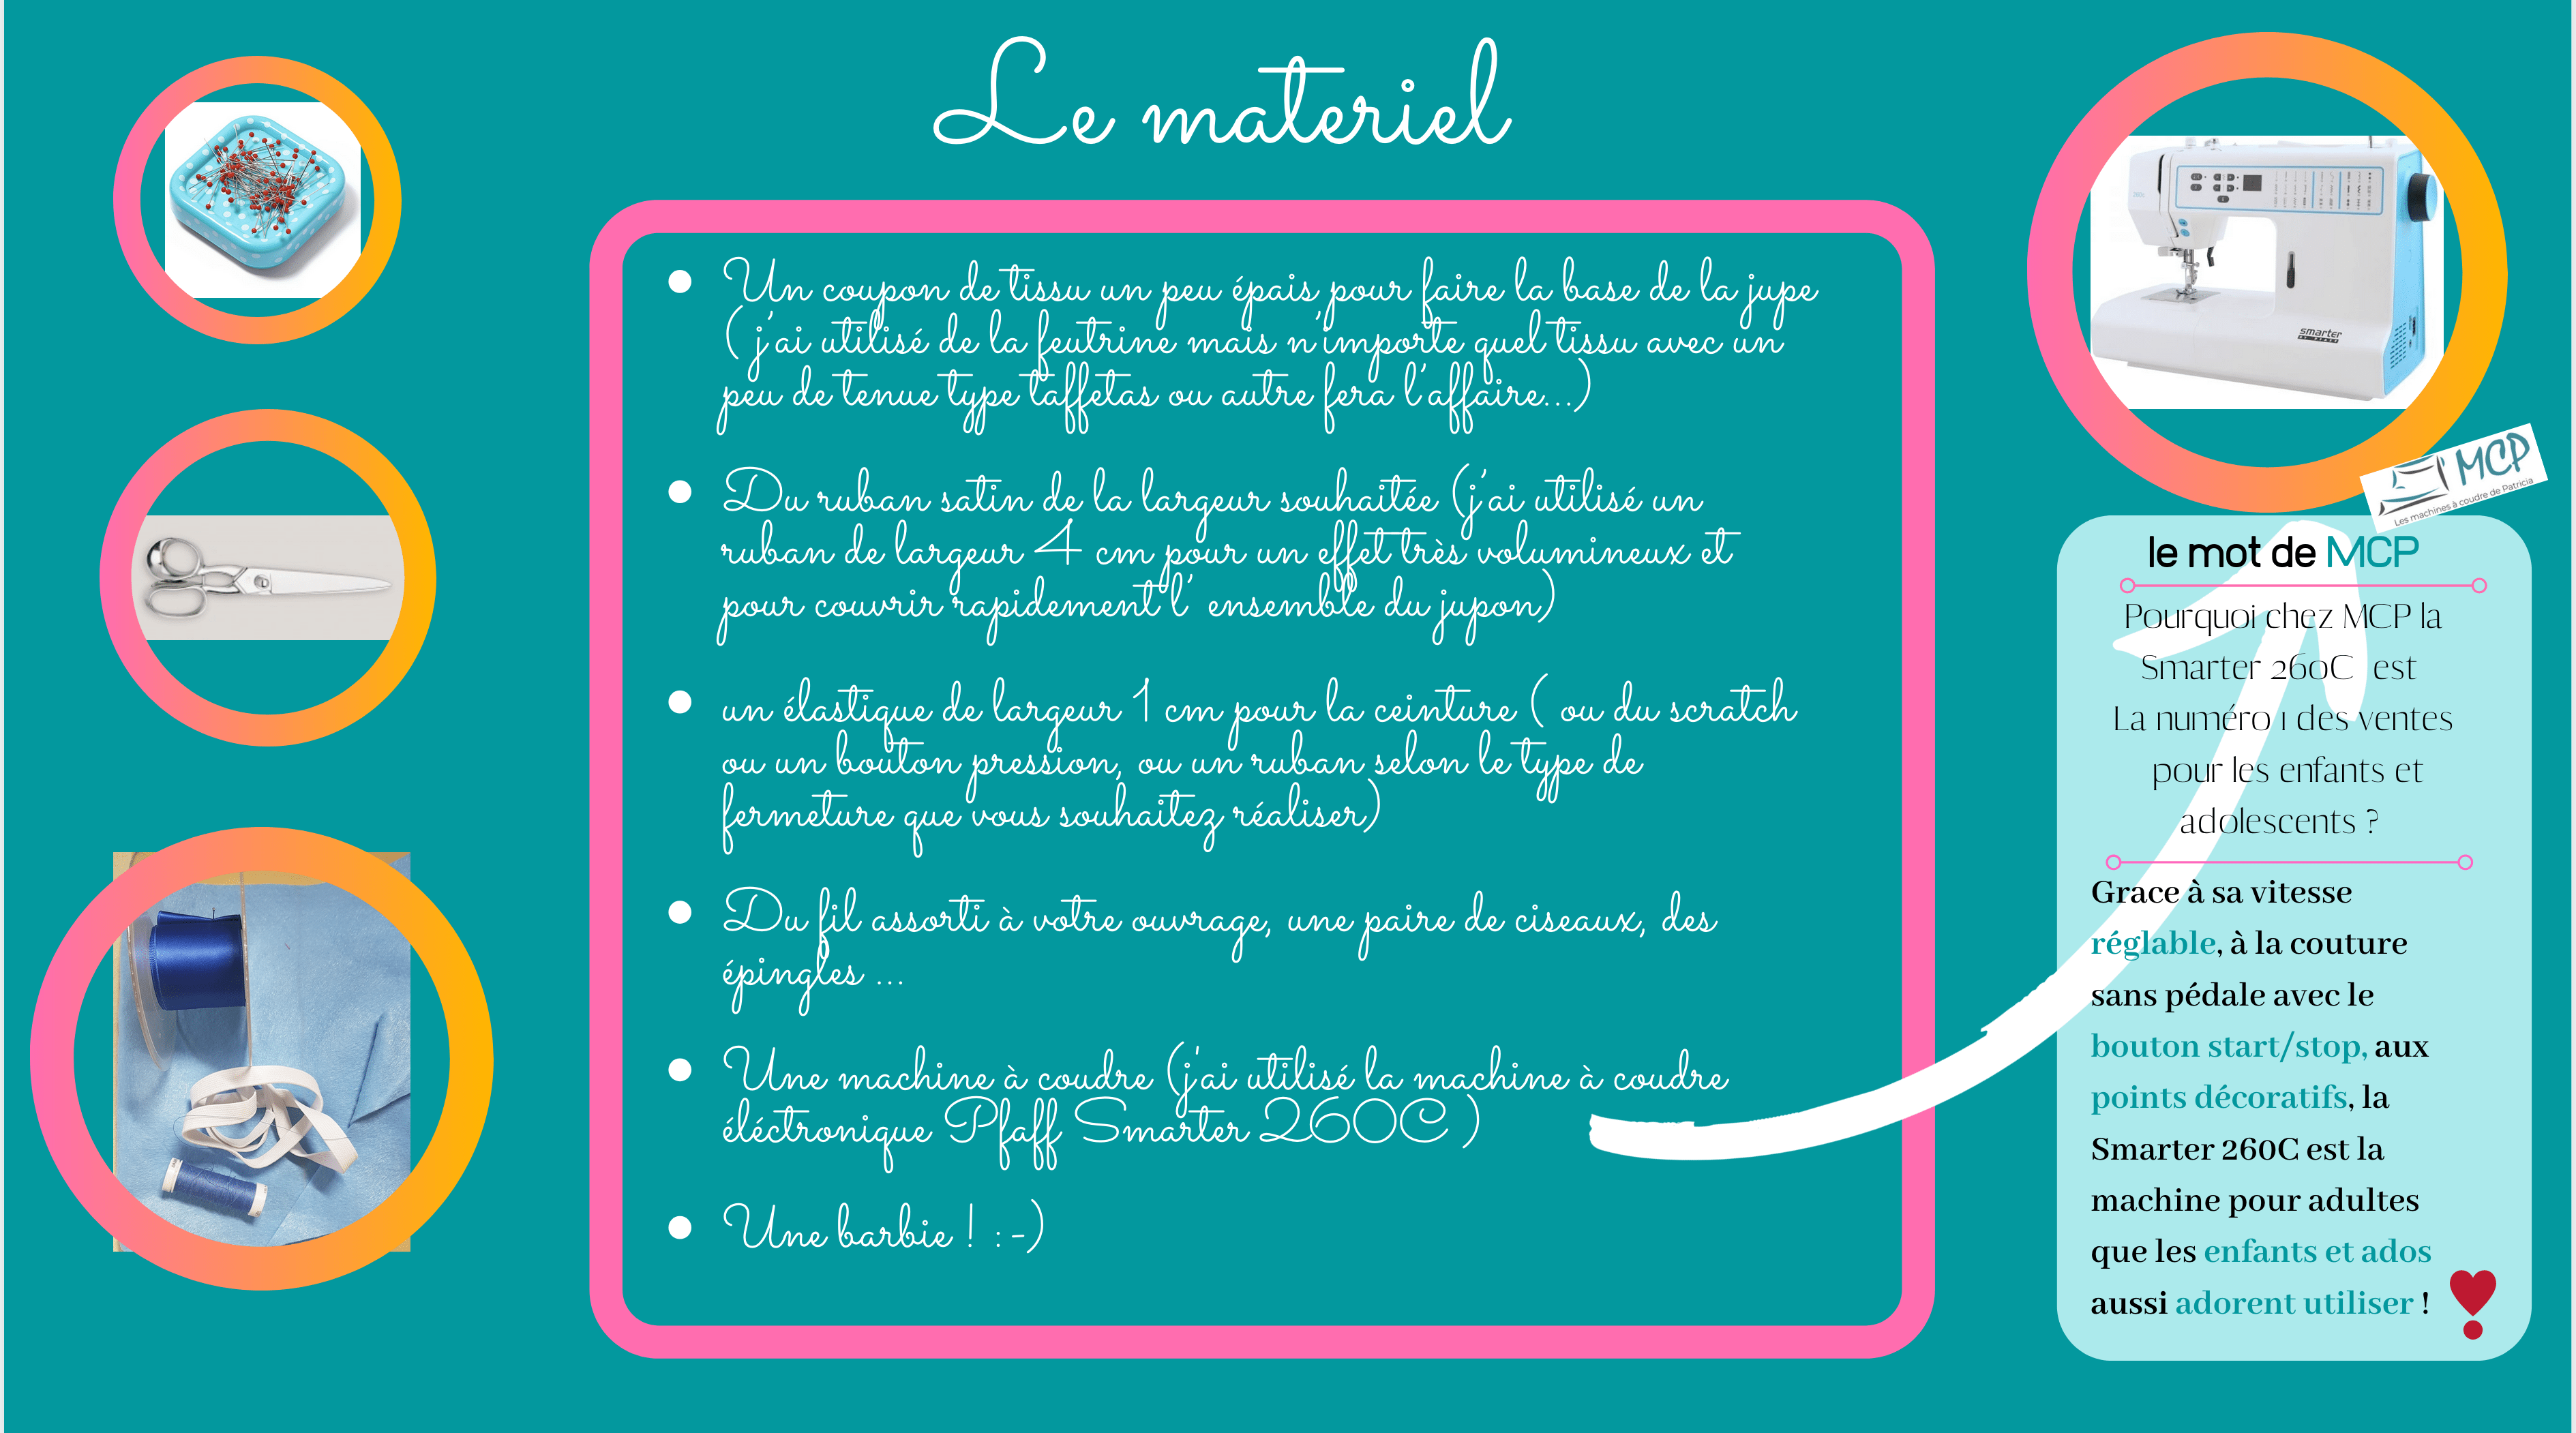 Le materiel
Un coupon de tissu un peu épais pour faire la base de la jupe
( j'ai utilisé de la feutrine mais n'importe quel tissu avec un
peu de tenue type taffetas ou autre fera l'affaire...)
Du ruban satin de la largeur souhaitée (j'ai utilisé un
ruban de largeur 4 cm pour un effet très volumineux et
pour couvrir rapidement l' ensemble du jupon)
un élastique de largeur 1 cm pour la ceinture ( ou du scratch
ou un bouton pression, ou un ruban selon le type de
fermeture que vous souhaitez réaliser)
Du fil assorti à votre ouvrage, une paire de ciseaux, des
épingles ...
Une machine à coudre (j'ai utilisé la machine à coudre
éléctronique Pfaff Smarter 260C )
Une barbie ! :-)
smarter
MCP
Les machines à coudre de Patricia
le mot de MCP
Pourquoi chez MCP la
Smarter 260C est
La numéro 1 des ventes
pour les enfants et
adolescents ?
Grace à sa vitesse
réglable, à la couture
sans pédale avec le
bouton start/stop, aux
points décoratifs, la
Smarter 260C est la
machine pour adultes
que les enfants et ados
aussi adorent utiliser !